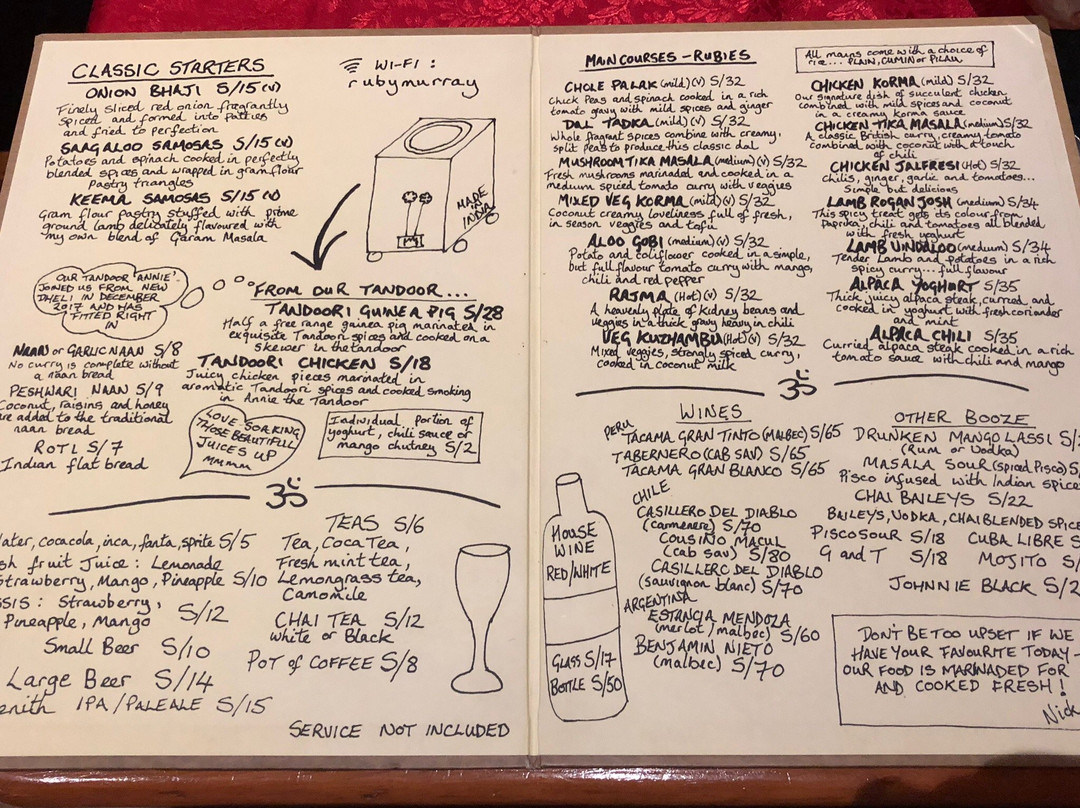 CLASSIC STARTERS
ONION BHAJI S/15 (v)
Finely sliced red onion fragrantly
spiced and formed into patties
and fried to perfection
SAAG ALOO SAMOSAS S/15 (v)
Potatoes and spinach cooked in perfectly
blended spices and wrapped in gram flour
pastry triangles
KEEMA SAMOSAS S/15 (v)
Gram flour pastry stuffed with prime
ground lamb delicately flavoured with
my own blend of Garam Masala
WI-FI :
rubymurray
MADE
IN
INDIA
OUR TANDOOR 'ANNIE'
JOINED US FROM NEW
DHELI IN DECEMBER
2017 AND HAS
FITTED RIGHT
IN
FROM OUR TANDOOR...
TANDOORI GUINEA PIG S/28
Half a free range guinea pig marinated in
exquisite Tandoori spices and cooked on a
skewer in the tandoor
TANDOORI CHICKEN S/18
Juicy chicken pieces marinated in
aromatic Tandoori spices and cooked smoking
in Annie the Tandoor
NAAN or GARLIC NAAN S/8
No curry is complete without
a naan bread
PESHWARI NAAN S/9
Coconut, raisins and honey
are added to the traditional
naan bread
ROTI S/7
Indian flat bread
LOVE SOAKING
THOSE BEAUTIFUL
JUICES UP
MMMM
Individual portion of
yoghurt, chili sauce or
mango chutney S/2
ॐ
ater, cocacola, inca, fanta, sprite S/5
sh fruit Juice : Lemonade
Strawberry, Mango, Pineapple S/10
SSIS : Strawberry,
Pineapple, Mango S/12
Small Beer S/10
Large Beer S/14
enith IPA/PALE ALE S/15
TEAS S/6
Tea, Coca Tea,
Fresh mint tea,
Lemongrass tea,
Camomile
CHAI TEA S/12
White or Black
POT of COFFEE S/8
SERVICE NOT INCLUDED
MAIN COURSES - RUBIES
All mains come with a choice of
rice... PLAIN, CUMIN or PILAU
CHOLE PALAK (mild) (v) S/32
Chick Peas and spinach cooked in a rich
tomato gravy with mild spices and ginger
DAL TADKA (mild) (v) S/32
Whole fragrant spices combine with creamy,
split peas to produce this classic dal
MUSHROOM TIKA MASALA (medium) (v) S/32
Fresh mushrooms marinaded and cooked in a
medium spiced tomato curry with veggies
MIXED VEG KORMA (mild) (v) S/32
Coconut creamy loveliness full of fresh,
in season veggies and tofu
ALOO GOBI (medium) (v) S/32
Potato and coliflower cooked in a simple,
but full flavour tomato curry with mango,
chili and red pepper
RAJMA (Hot) (v) S/32
A heavenly plate of kidney beans and
veggies in a thick gravy heavy in chili
VEG KUZHAMBU (Hot) (v) S/32
Mixed veggies, strongly spiced curry,
cooked in coconut milk
CHICKEN KORMA (mild) S/32
Our signature dish of succulent chicken
combined with mild spices and coconut
in a creamy korma sauce
CHICKEN TIKA MASALA (medium) S/32
A classic British curry, creamy tomato
combined with coconut with a touch
of chili
CHICKEN JALFRESI (Hot) S/32
Chilis, ginger, garlic and tomatoes...
Simple but delicious
LAMB ROGAN JOSH (medium) S/34
This spicy treat gets its colour from
Paprika, chili and tomatoes all blended
with fresh yoghurt
LAMB VINDALOO (medium) S/34
Tender Lamb and potatoes in a rich
spicy curry... full flavour
ALPACA YOGHURT S/35
Thick juicy alpaca steak, curried and
cooked in yoghurt with fresh coriander
and mint
ALPACA CHILI S/35
Curried alpaca steak cooked in a rich
tomato sauce with chili and mango
ॐ
WINES
PERU
TACAMA GRAN TINTO (MALBEC) S/65
TABERNERO (CAB SAV) S/65
TACAMA GRAN BLANCO S/65
CHILE
CASILLERO DEL DIABLO
(carmenere) S/70
COUSINO MACUL
(cab sav) S/80
CASILLERO DEL DIABLO
(sauvignon blanc) S/70
ARGENTINA
ESTANCIA MENDOZA
(merlot/malbec) S/60
BENJAMIN NIETO
(malbec) S/70
HOUSE
WINE
RED/WHITE
GLASS S/17
BOTTLE S/50
OTHER BOOZE
DRUNKEN MANGO LASSI S/
(Rum or Vodka)
MASALA SOUR (Spiced Pisco) S
Pisco infused with Indian spice
CHAI BAILEYS S/22
BAILEYS, VODKA, CHAI BLENDED SPICE
PISCO SOUR S/18 CUBA LIBRE S
G and T S/18 MOJITO S/
JOHNNIE BLACK S/2
DON'T BE TOO UPSET IF WE
HAVE YOUR FAVOURITE TODAY -
OUR FOOD IS MARINADED FOR
AND COOKED FRESH!
Nick